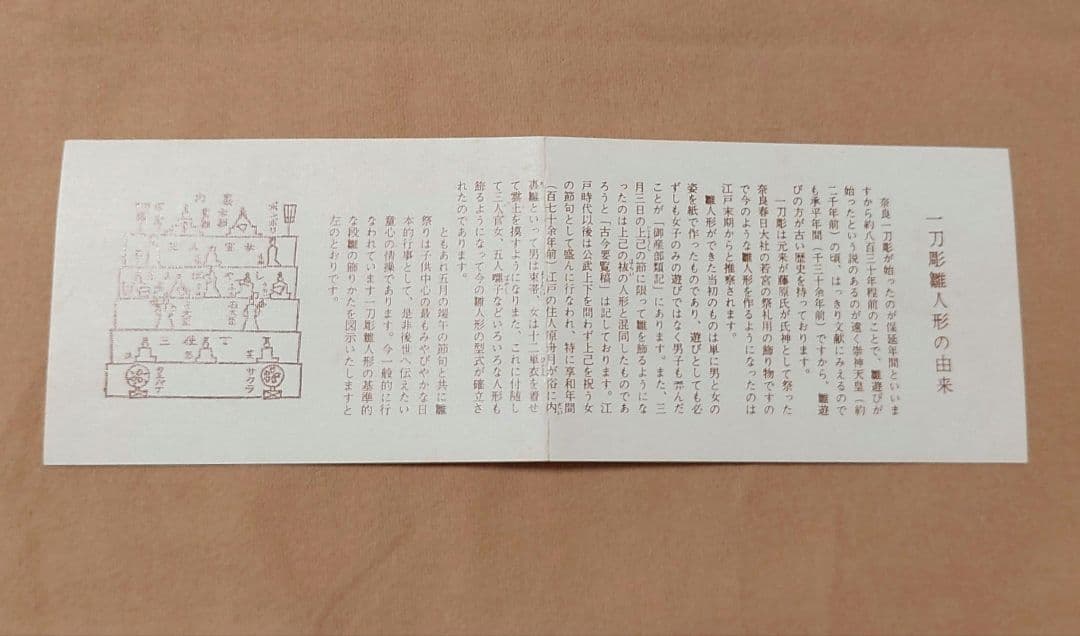 一刀彫雛人形の由来
奈良一刀彫が始ったのが保延年間といいま
すから約八百三十年程前のことで、雛遊びが
始ったという説のあるのが遠く崇神天皇（約
二千年前）の頃、はっきり文献にみえるので
も承平年間（千三十余年前）ですから、雛遊
びの方が古い歴史を持っております。
一刀彫は元来が藤原氏が氏神として祭った
奈良春日大社の若宮の祭礼用の飾り物ですの
で今のような雛人形を作るようになったのは
江戸末期からと推察されます。
雛人形ができた当初のものは単に男と女の
姿を紙で作ったものであり、遊びとしても必
ずしも女子のみの遊びではなく男子も弄んだ
ことが「御産部類記」にあります。また、三
月三日の上己の節に限って雛を飾るようにな
ったのは上己の祓の人形と混同したものであ
ろうと「古今要覧稿」は記しております。江
戸時代以後は公武上下を問わず上己を祝う女
の節句として盛んに行なわれ、特に享和年間
（百七十余年前）江戸の住人原舟月が俗に内
裏雛といって男は束帯、女は十二単衣を着せ
て雲上を摸すようになりまた、これに付随し
て三人官女、五人囃子などいろいろな人形も
飾るようになって今の雛人形の型式が確立さ
れたのであります。
ともあれ五月の端午の節句と共に雛
祭りは子供中心の最もみやびやかな日
本的行事として、是非後世へ伝えたい
童心の情操であります。今、一般的に行
なわれています一刀彫雛人形の基準的
な段雛の飾りかたを図示いたしますと
左のとおりです。
内裏
ボンボリ
官女
右大臣
左大臣
三仕丁
タチバナ
サクラ